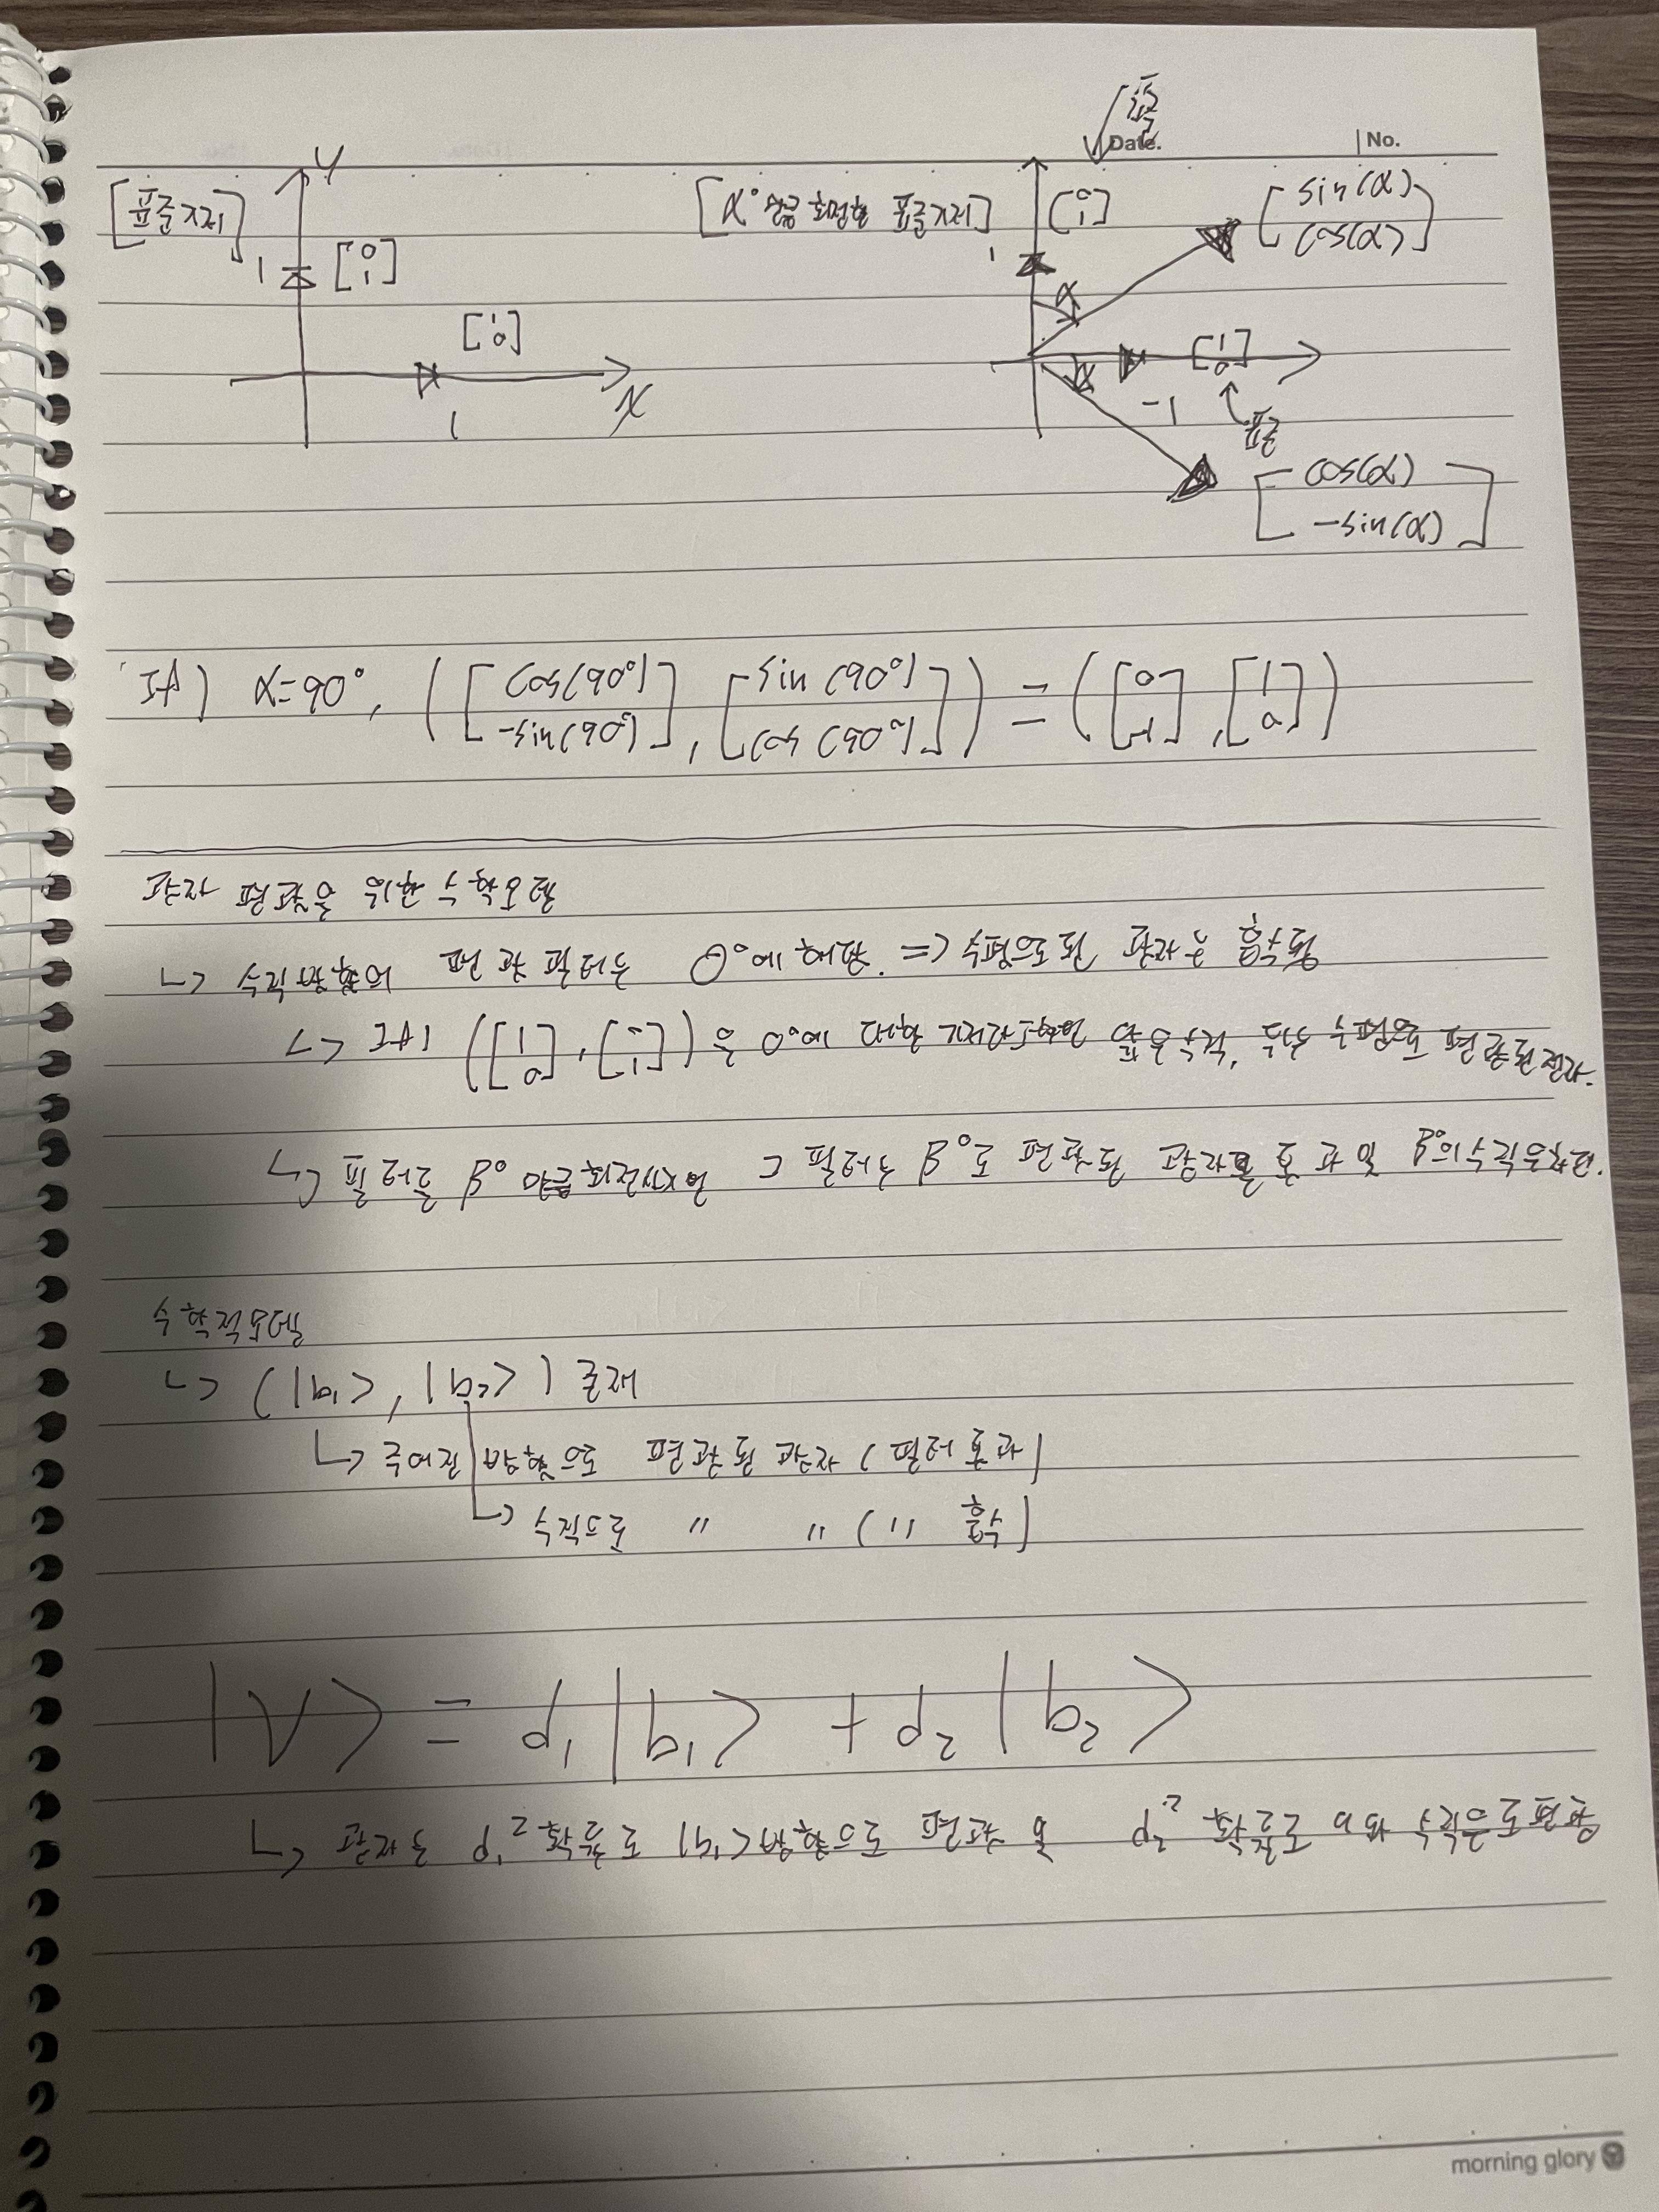 표준
Date.
No.
[표준기저]
y
1
[0 1]
[1 0]
1
x
[α°만큼 회전한 표준기저]
[0 1]
1
α
[sin(α) cos(α)]
α
-1
[1 0]
표준
[cos(α) -sin(α)]
IF) α=90°, ([cos(90°) -sin(90°)], [sin(90°) cos(90°)]) = ([0 -1], [1 0])
광자 편광을 위한 수학모델
↳ 수직방향의 편광필터는 0°에 해당. => 수평으로된 광자은 흡수됨
↳ IF) ([1 0], [0 1])을 0°에 대한 기저라 앞은 수직, 뒤는 수평으로 편광된 전자.
↳ 필터를 β°만큼 회전시키면 그 필터는 β°로 편광된 광자를 통과 및 β°의 수직은
수학적모델
↳ (|b₁>, |b₂>) 존재
↳ 주어진 방향으로 편광된 광자 (필터 통과)
↳ 수직으로 〃 〃 (〃 흡수)
|V> = d₁|b₁> + d₂|b₂>
↳ 광자는 d₁² 확률로 |b₁>방향으로 편광 및 d₂² 확률로 수직으로 편광
morning glory